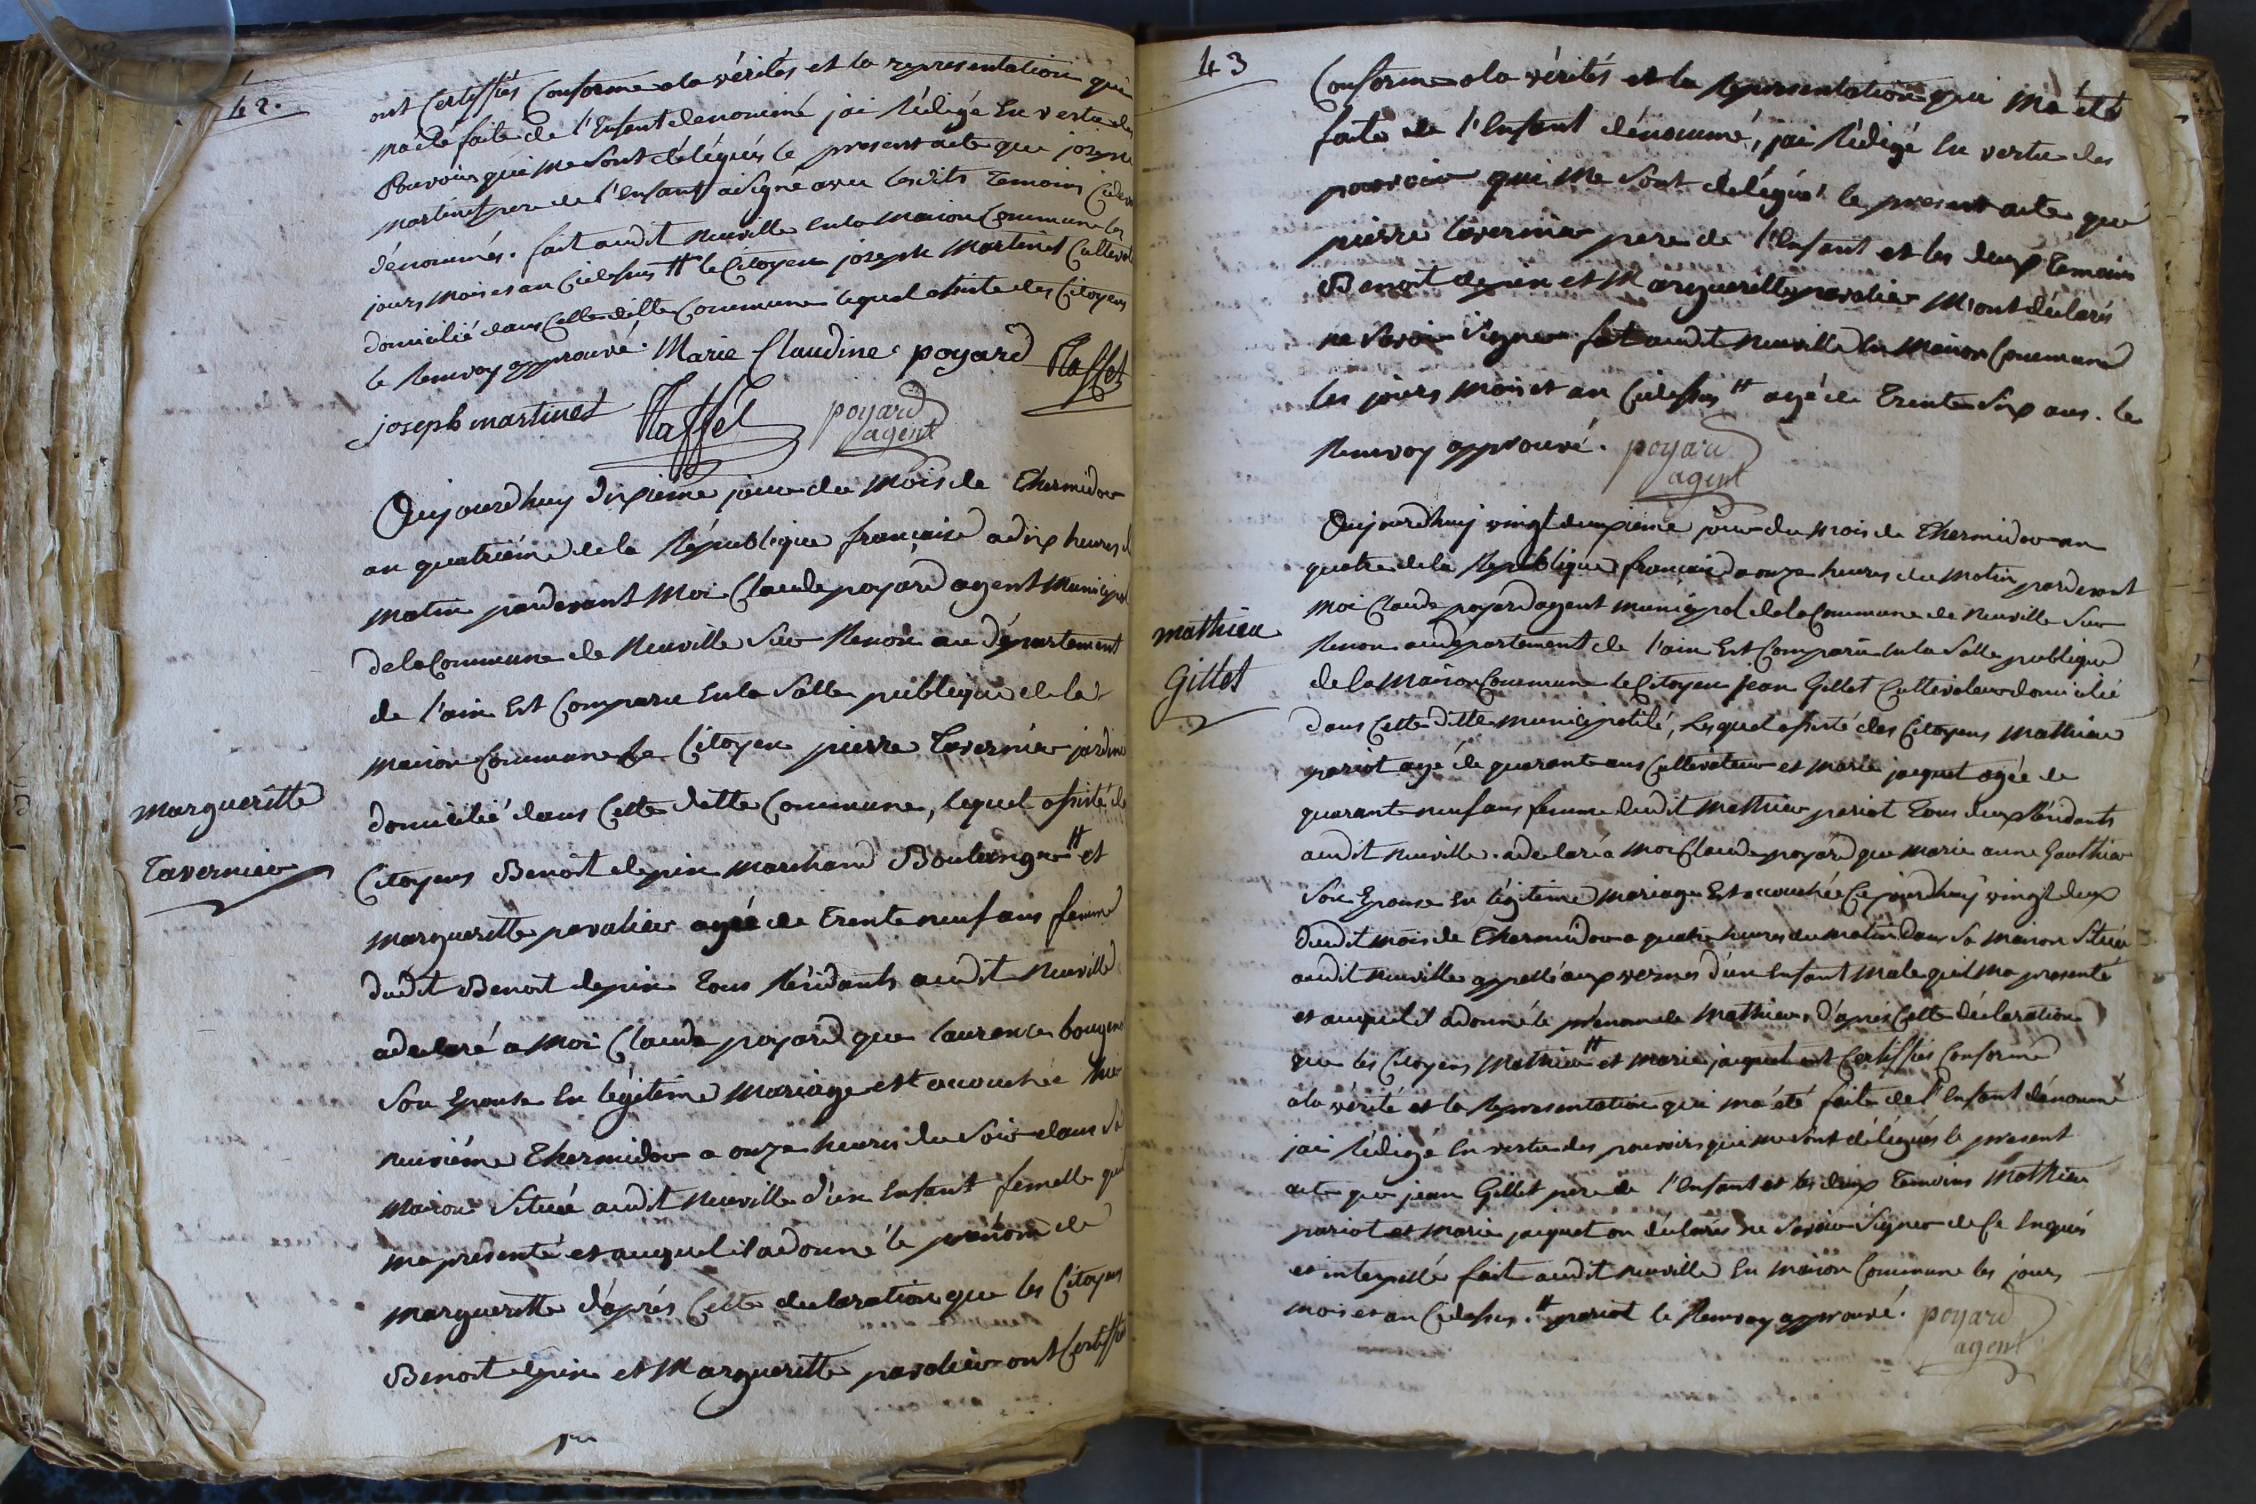 42.
ont Certiffiés Conforme a la vérités et la representation qui
m'a été faite de l'Enfant denommé jai Rédigé En vertu des
Pouvoirs qui me Sont délégués le present acte que joseph
martinet pere de l'enfant a Signé avec lesdits temoins Cidev
dénommés. fait audit Neuville en la Maison Commune les
jours Mois et an Cidessus # le Citoyen joseph Martinet Cultivat
domicilié dans Cette ditte Commune lequel assisté des Citoyens
le Renvoy approuvé. Marie Claudine poyard Raffet
joseph martinet Raffet poyard
agent
Marguerite
Tavernier
Aujourdhuy dixieme jour du Mois de Thermidor
an quatrieme de la République française a dix heures d
matin pardevant Moi Claude poyard agent Municipal
de la Commune de Neuville Sur Renon au Département
de l'ain Est Comparu En la Salle publique de la
Maison Commune Le Citoyen pierre Tavernier jardini
domicilié dans Cette ditte Commune, lequel assisté de
Citoyens Benoit depin Marchand Boulanger # et
Marguerite pavalier agée de Trente neuf ans femme
dudit Benoit depin tous Résidants audit Neuville
a declaré a Moi Claude poyard que laurence bougem
Son Epouse En légitime Mariage est accouchée hier
neuvième Thermidor a onze heures du Soir dans Sa
Maison Située audit Neuville d'un Enfant femelle quil
ma presenté et auquel il a donné le prénom de
marguerite d'aprés Cette declaration que les Citoyens
Benoit depin et Marguerite pavalier ont Certiffié
43
Conforme a la vérités et la Representation qui Ma été
faite de l'Enfant dénommé, jai Rédigé En vertu des
pouvoir qui Me Sont délégué le present acte que
pierre tavernier pere de l'Enfant et les deux Temoins
Benoit depin et Marguerite pavalier M'ont déclarés
ne Savoir Signer fait audit Neuville En Maison Commune
les jours Mois et an Cidessus # agé de Trente Six ans. le
Renvoy approuvé. poyard
agent
mathieu
Gillet
Aujourdhuy vingt deuxieme jour du Mois de Thermidor an
quatre de la République française a onze heures du Matin pardevant
Moi Claude poyard agent municipal de la Commune de Neuville Sur
Renon au departement de l'ain Est Comparu En la Salle publique
de la Maison Commune le Citoyen jean Gillet Cultivateur domicilié
dans Cette ditte Municipalité, Lequel assisté des Citoyens Mathieu
pariot agé de quarante ans Cultivateur et Marie jacquet agée de
quarante neuf ans femme dudit Mathieu pariot Tous deux Résidants
audit Neuville. a declaré a Moi Claude poyard que Marie anne Gauthier
Son Epouse En légitime Mariage Est accouchée Ce jourdhuy vingt deux
dudit Mois de Thermidor a quatre heures du Matin dans Sa Maison Située
audit Neuville appellé aux vernes d'un Enfant Male quil Ma presenté
et auquel il a donné le prénom de Mathieu, d'aprés Cette déclaration
que les Citoyens Mathieu # et Marie jacquet ont Certiffiés Conforme
a la vérité et la Representation qui Ma été faite de l'Enfant dénommé
jai Rédigé En vertu des pouvoirs qui me Sont délégués le present
acte que jean Gillet pere de l'Enfant et les deux Temoins Mathieu
pariot et Marie jacquet on déclarés ne Savoir Signer de Ce Enquis
et interpellé fait audit Neuville En Maison Commune les jours
Mois et an Cidessus. # pariot le Renvoy approuvé. poyard
agent